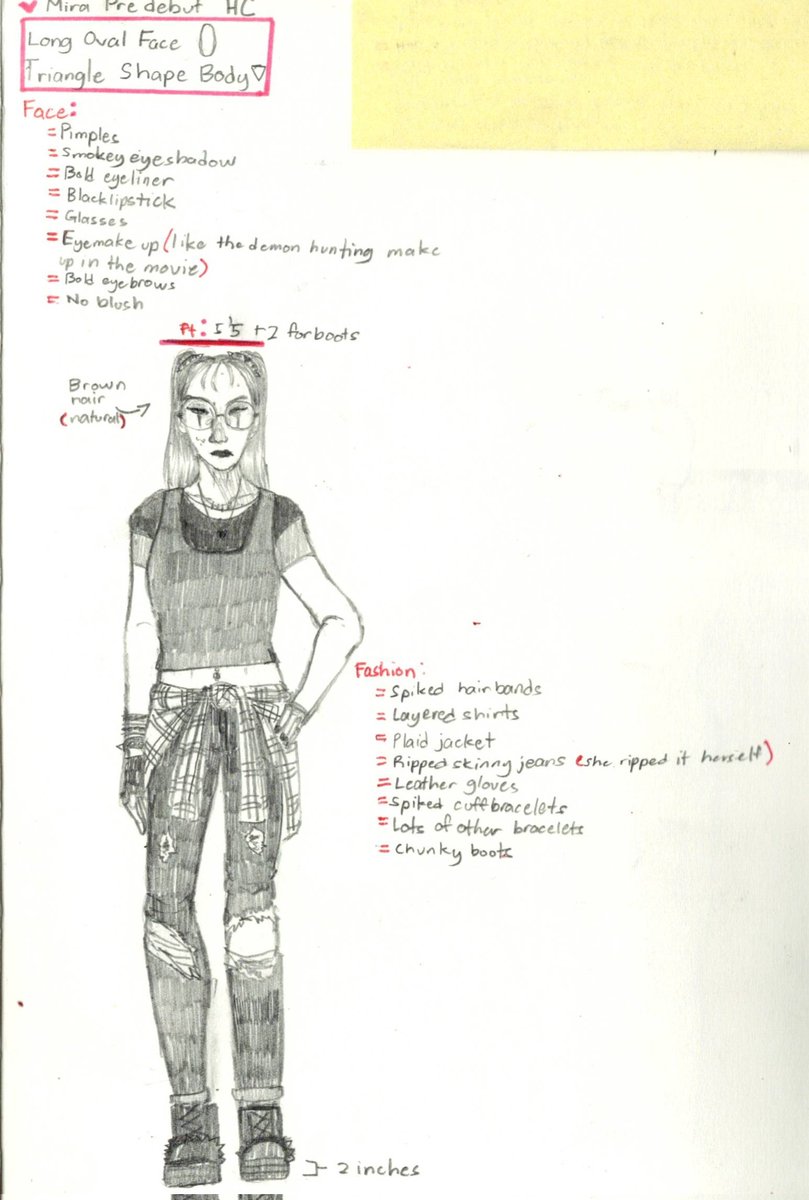 Mira Pre debut HC
Long Oval Face
Triangle Shape Body
Face:
= Pimples
= Smokey eyeshadow
= Bold eyeliner
= Black lipstick
= Glasses
= Eyemake up (like the demon hunting make
up in the movie)
= Bold eyebrows
= No blush
Ft: 5'5 +2 for boots
Brown
hair
(natural)
Fashion:
= Spiked hairbands
= Layered shirts
= Plaid jacket
= Ripped skinny jeans (she ripped it herself)
= Leather gloves
= Spiked cuff bracelets
= Lots of other bracelets
= Chunky boots
2 inches